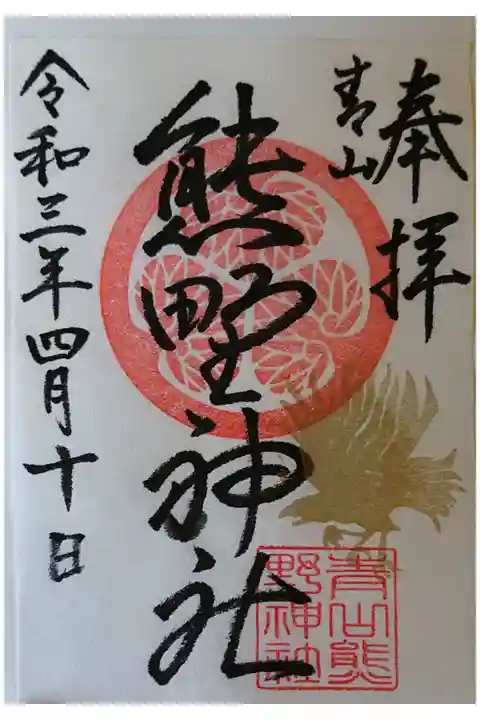 奉拝
青山
熊野神社
令和三年四月十日
青山熊
野神社